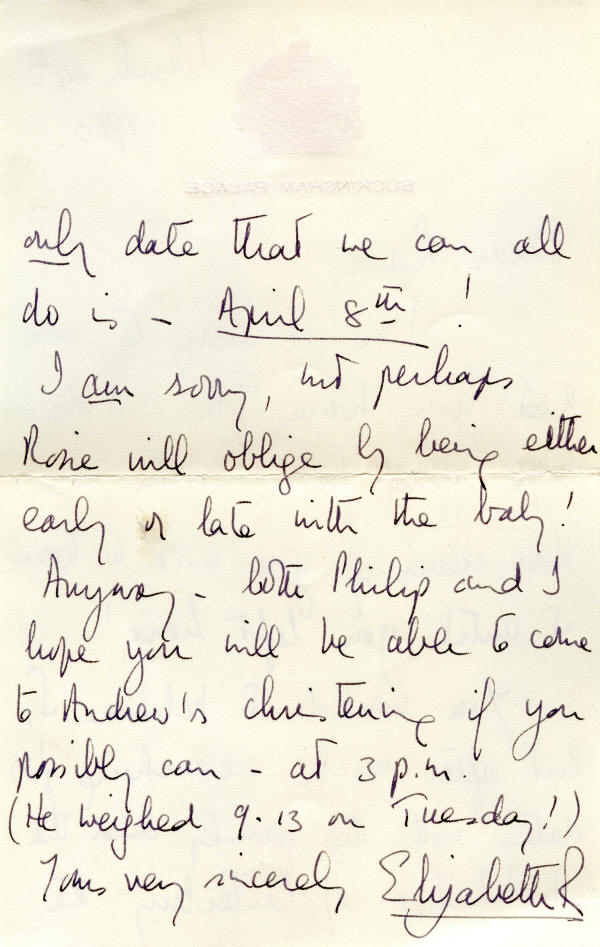 only date that we can all
do is - April 8th !
I am sorry, but perhaps
Rosie will oblige by being either
early or late with the baby!
Anyway - both Philip and I
hope you will be able to come
to Andrew's christening if you
possibly can - at 3 p.m.!
(He weighed 9.13 on Tuesday!)
Yours very sincerely Elizabeth R